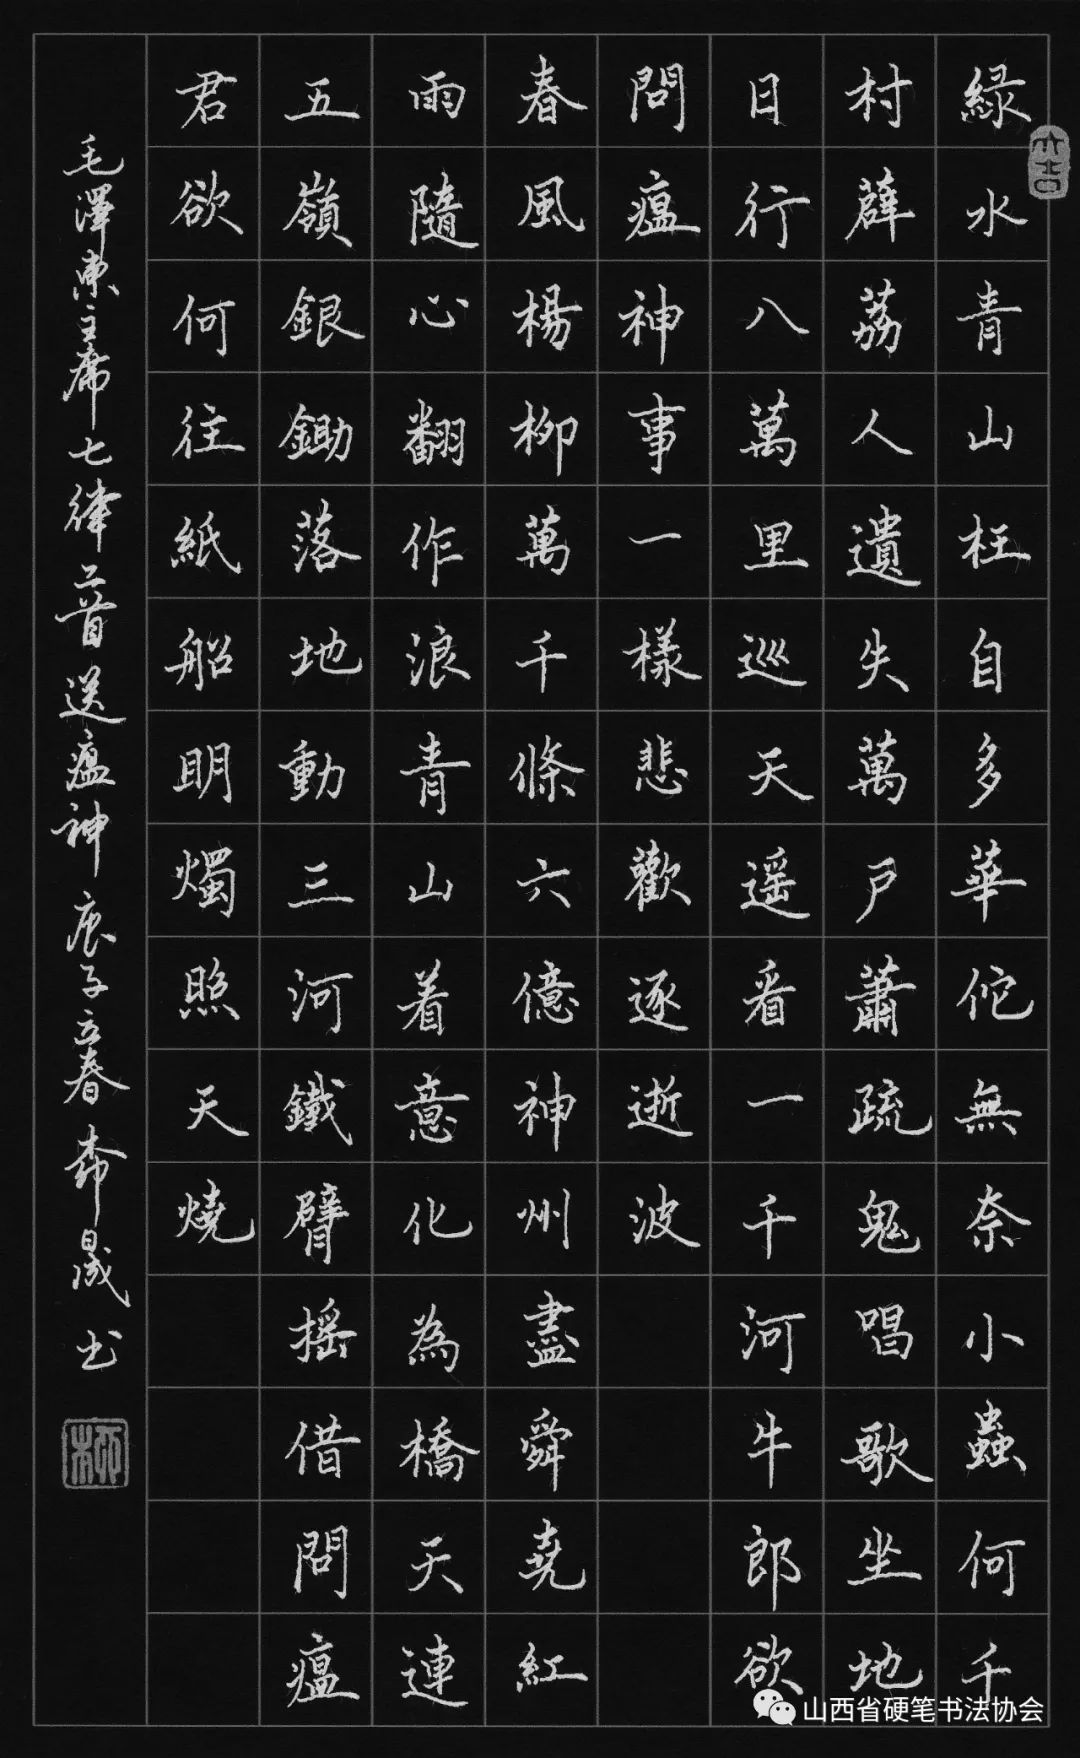 緑水青山枉自多華佗無奈小蟲何千
村薜荔人遺失萬戸蕭疏鬼唱歌坐地
日行八萬里巡天遥看一千河牛郎欲
問瘟神事一樣悲歡逐逝波
春風楊柳萬千條六億神州盡舜堯紅
雨隨心翻作浪青山着意化為橋天連
五嶺銀鋤落地動三河鐵臂揺借問瘟
君欲何往紙船明燭照天燒
毛澤東主席七律二首送瘟神庚子立春晟书
山西省硬笔书法协会